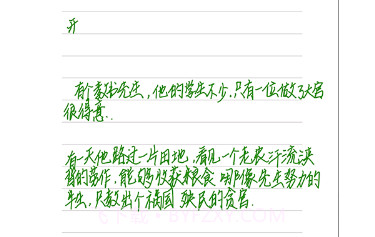 开
有个教书先生,他的学生不少.只有一位做了大官
很得意..
有一天他路过一片田地,看见一个老农汗流浃
背的劳作.能够收获粮食 哪像先生努力的
半生,只教出个祸国 殃民的贪官.